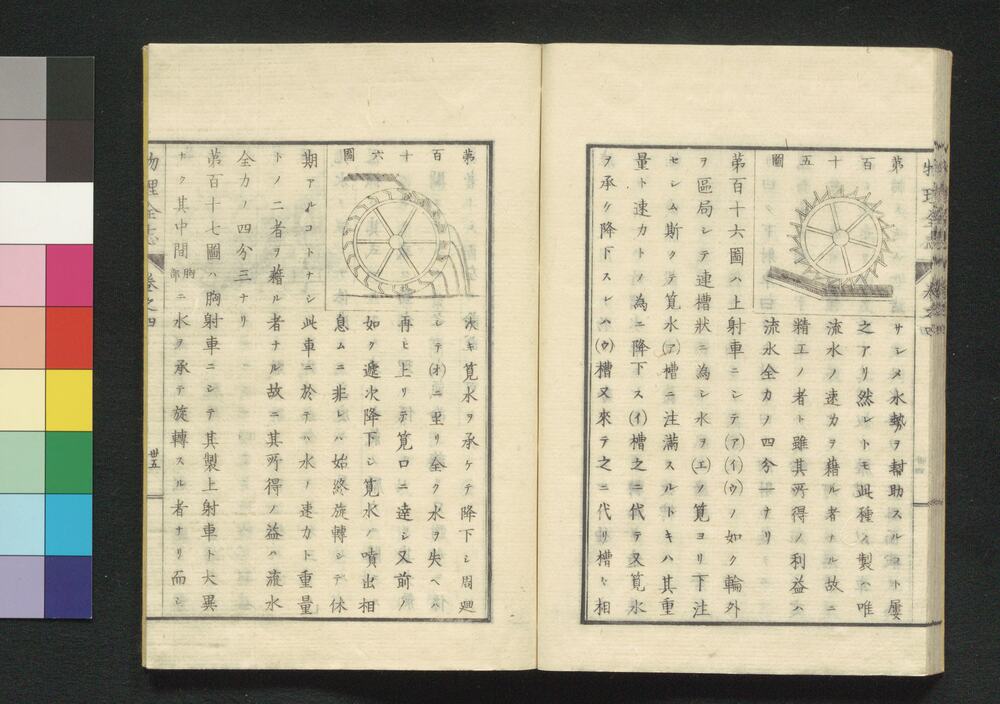 物理全志
卷之四
第百十五圖
サシメ水勢ヲ幇助スルコト屢
之アリ然レトモ此種ノ製ハ唯
流水ノ速力ヲ藉ル者ナル故ニ
精工ノ者ト雖其所得ノ利益ハ
流水全力ノ四分一ナリ
第百十六圖ハ上射車ニシテ(ア)(イ)(ウ)ノ如ク輪外
ヲ區局シテ連槽狀ニ為シ水ヲ(エ)ノ筧ヨリ下注
セシム斯クテ筧水(ア)槽ニ注滿スルトキハ其重
量ト速力トノ為ニ降下ス(イ)槽之ニ代テ又筧水
ヲ承ケ降下スレハ(ウ)槽又來テ之ニ代リ槽々相
第百十六圖
次キ筧水ヲ承ケテ降下シ周廻
シテ(オ)ニ至リ全ク水ヲ失ヘハ
再ヒ上リテ筧口ニ達シ又前ノ
如ク遞次降下シ筧水ノ噴出相
息ムニ非レハ始終旋轉シテ休
期アルコトナシ此車ニ於テハ水ノ速力ト重量
トノ二者ヲ藉ル者ナル故ニ其所得ノ益ハ流水
全力ノ四分三ナリ
第百十七圖ハ胸射車ニシテ其製上射車ト大異
ナク其中間胸部ニ水ヲ承テ旋轉スル者ナリ而シ
物理全志
卷之四
卅五